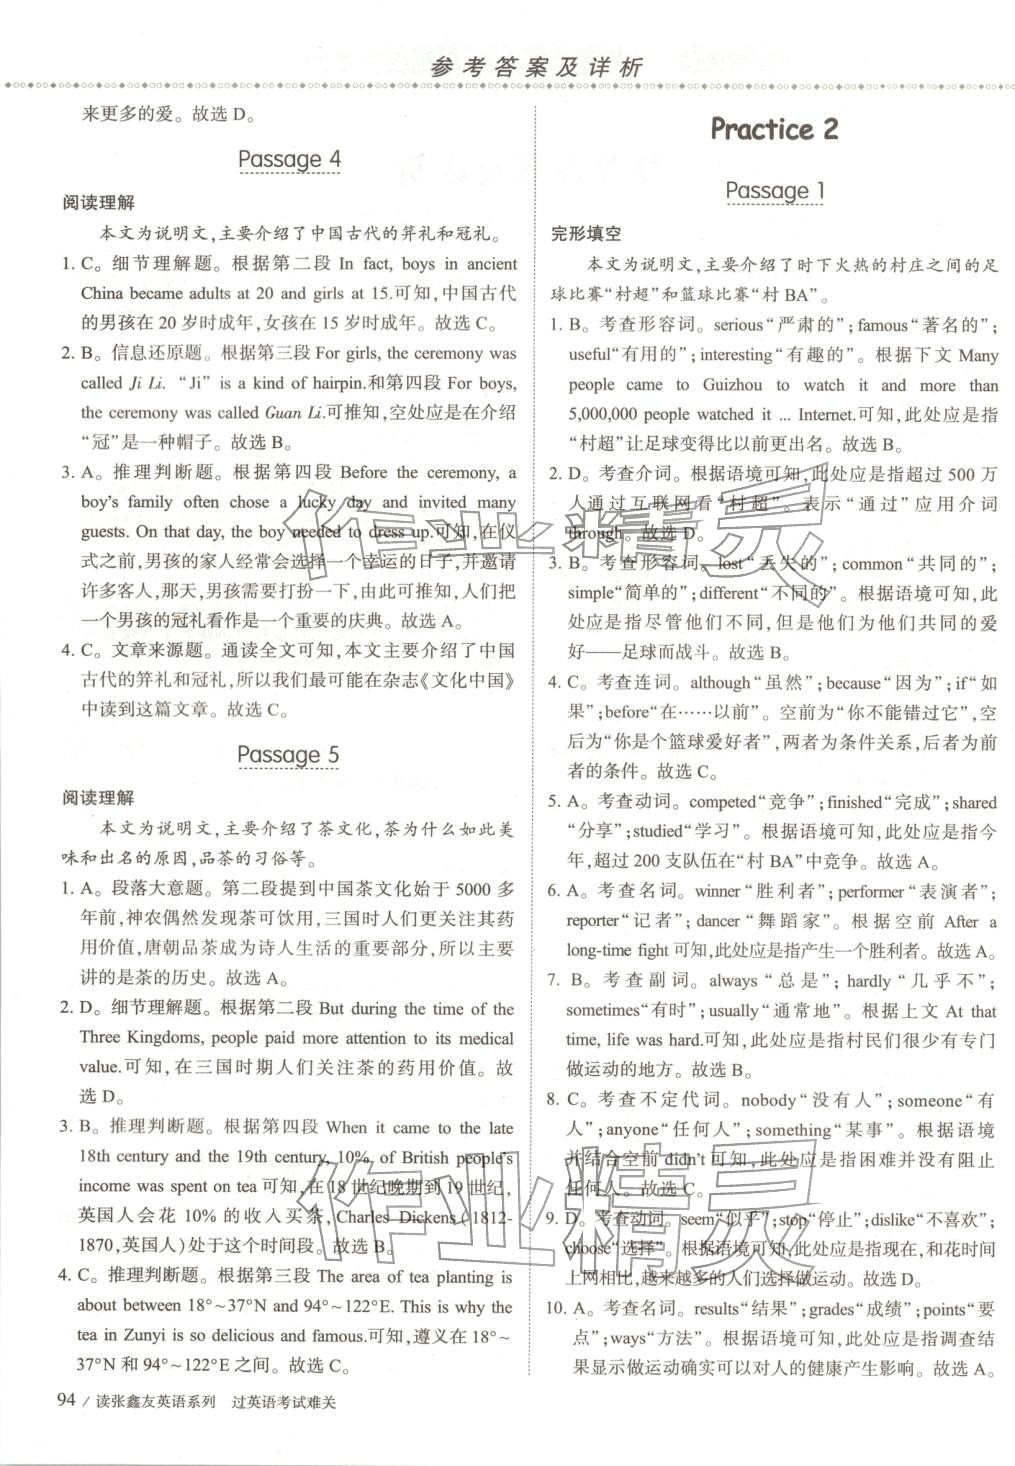 参考答案及详析
来更多的爱。故选 D。
Passage 4
阅读理解
本文为说明文,主要介绍了中国古代的笄礼和冠礼。
1. C。细节理解题。根据第二段 In fact, boys in ancient
China became adults at 20 and girls at 15.可知,中国古代
的男孩在 20 岁时成年,女孩在 15 岁时成年。故选 C。
2. B。信息还原题。根据第三段 For girls, the ceremony was
called Ji Li. “Ji” is a kind of hairpin.和第四段 For boys,
the ceremony was called Guan Li.可推知,空处应是在介绍
“冠”是一种帽子。故选 B。
3. A。推理判断题。根据第四段 Before the ceremony, a
boy's family often chose a lucky day and invited many
guests. On that day, the boy needed to dress up.可知,在仪
式之前,男孩的家人经常会选择一个幸运的日子,并邀请
许多客人,那天,男孩需要打扮一下,由此可推知,人们把
一个男孩的冠礼看作是一个重要的庆典。故选 A。
4. C。文章来源题。通读全文可知,本文主要介绍了中国
古代的笄礼和冠礼,所以我们最可能在杂志《文化中国》
中读到这篇文章。故选 C。
Passage 5
阅读理解
本文为说明文,主要介绍了茶文化,茶为什么如此美
味和出名的原因,品茶的习俗等。
1. A。段落大意题。第二段提到中国茶文化始于 5000 多
年前,神农偶然发现茶可饮用,三国时人们更关注其药
用价值,唐朝品茶成为诗人生活的重要部分,所以主要
讲的是茶的历史。故选 A。
2. D。细节理解题。根据第二段 But during the time of the
Three Kingdoms, people paid more attention to its medical
value.可知,在三国时期人们关注茶的药用价值。故
选 D。
3. B。推理判断题。根据第四段 When it came to the late
18th century and the 19th century, 10% of British people's
income was spent on tea 可知,在 18 世纪晚期到 19 世纪,
英国人会花 10%的收入买茶,Charles Dickens (1812-
1870,英国人)处于这个时间段。故选 B。
4. C。推理判断题。根据第三段 The area of tea planting is
about between 18°~37°N and 94°~122°E. This is why the
tea in Zunyi is so delicious and famous.可知,遵义在 18°~
37°N 和 94°~122°E 之间。故选 C。
94 / 读张鑫友英语系列 过英语考试难关
Practice 2
Passage 1
完形填空
本文为说明文,主要介绍了时下火热的村庄之间的足
球比赛“村超”和篮球比赛“村 BA”。
1. B。考查形容词。serious“严肃的”;famous“著名的”;
useful“有用的”;interesting“有趣的”。根据下文 Many
people came to Guizhou to watch it and more than
5,000,000 people watched it ... Internet.可知,此处应是指
“村超”让足球变得比以前更出名。故选 B。
2. D。考查介词。根据语境可知,此处应是指超过 500 万
人通过互联网看“村超”。表示“通过”应用介词
through。故选 D。
3. B。考查形容词。lost“丢失的”;common“共同的”;
simple“简单的”;different“不同的”。根据语境可知,此
处应是指尽管他们不同,但是为他们共同的爱
好——足球而战斗。故选 B。
4. C。考查连词。although“虽然”;because“因为”;if“如
果”;before“在……以前”。空前为“你不能错过它”,空
后为“你是个篮球爱好者”,两者为条件关系,后者为前
者的条件。故选 C。
5. A。考查动词。competed“竞争”;finished“完成”;shared
“分享”;studied“学习”。根据语境可知,此处应是指今
年,超过 200 支队伍在“村 BA”中竞争。故选 A。
6. A。考查名词。winner“胜利者”;performer“表演者”;
reporter“记者”;dancer“舞蹈家”。根据空前 After a
long-time fight 可知,此处应是指产生一个胜利者。故选 A。
7. B。考查副词。always“总是”;hardly“几乎不”;
sometimes“有时”;usually“通常地”。根据上文 At that
time, life was hard.可知,此处应是指村民们很少有专门
做运动的地方。故选 B。
8. C。考查不定代词。nobody“没有人”;someone“有
人”;anyone“任何人”;something“某事”。根据语境
并结合空前 didn't 可知,此处应是指困难并没有阻止
任何人。故选 C。
9. D。考查动词。seem“似乎”;stop“停止”;dislike“不喜欢”;
choose“选择”。根据语境可知,此处应是指,和花时间
上网相比,越来越多的人们选择做运动。故选 D。
10. A。考查名词。results“结果”;grades“成绩”;points“要
点”;ways“方法”。根据语境可知,此处应是指调查结
果显示做运动确实可以对人的健康产生影响。故选 A。
作业精灵
作业精灵